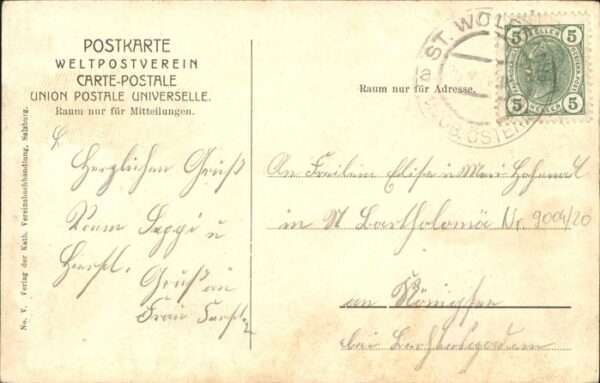 POSTKARTE
WELTPOSTVEREIN
CARTE-POSTALE
UNION POSTALE UNIVERSELLE.
Raum nur für Mitteilungen.
Herzlichen Gruß
Vom Seppi u
Gruß an
Frau
No. V. Verlag der Kath. Vereinsbuchhandlung, Salzburg.
Raum nur für Adresse.
ST. WOLF
OB. ÖSTERR
5 HELLER 5
5 HELLER 5
An Freilein Elise u Mari
in St Bartholomä Nr. 9004/20
am Königsee
bei